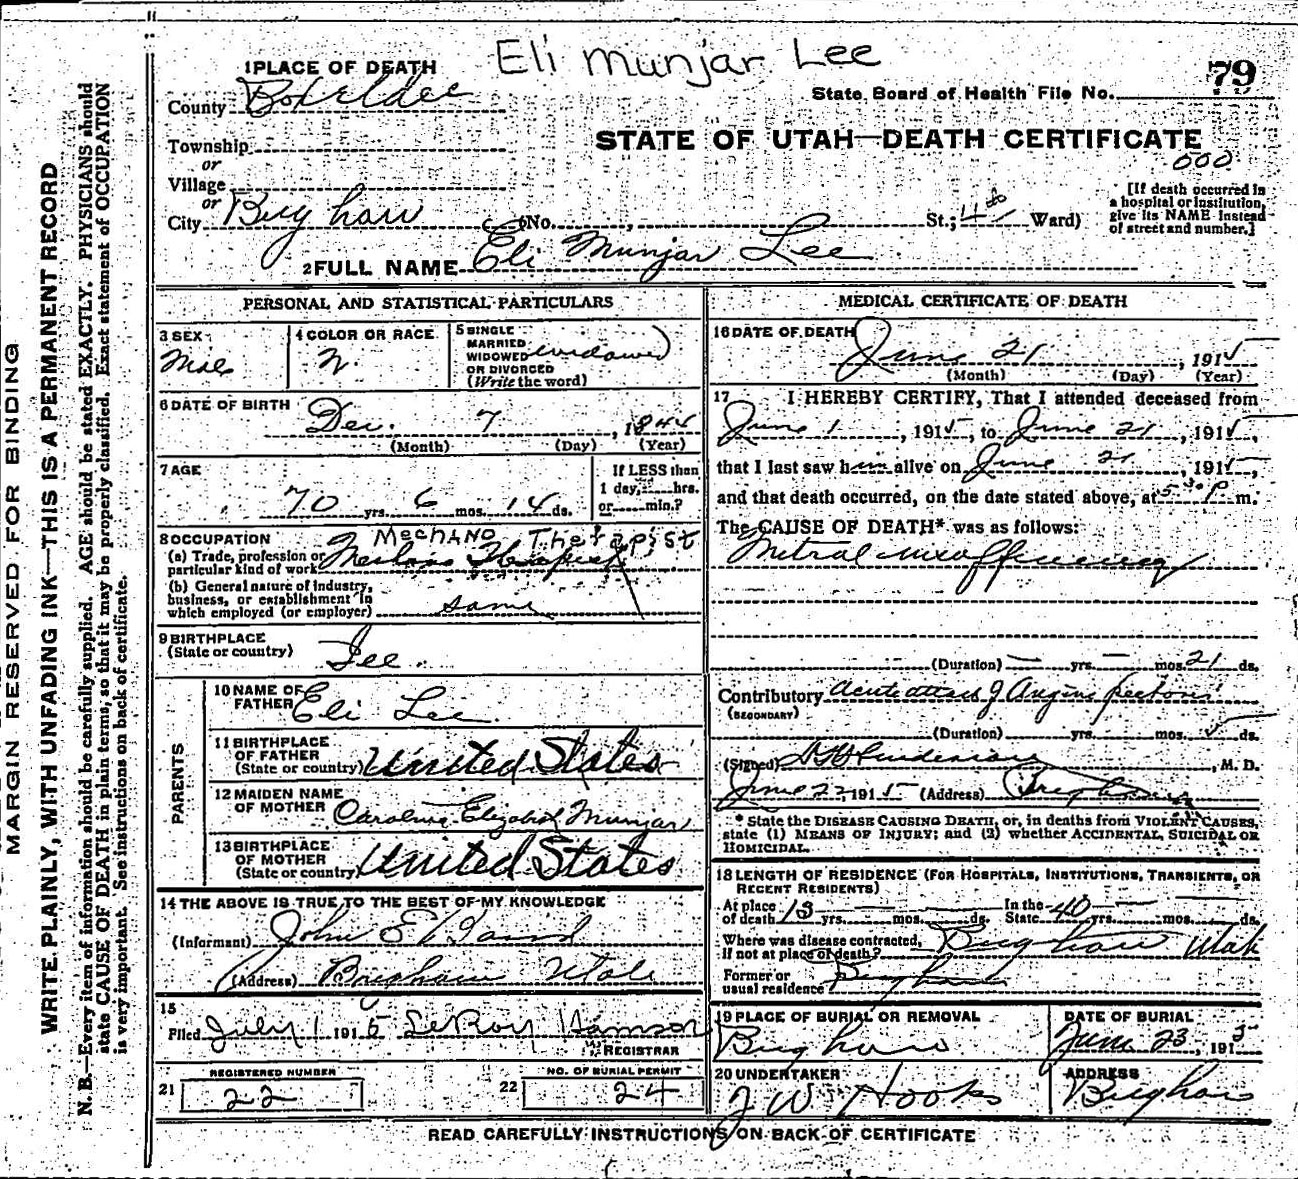 Eli Munjar Lee
79
State Board of Health File No.
1 PLACE OF DEATH
County Boxelder
STATE OF UTAH—DEATH CERTIFICATE
000
Township
or
Village
or
City Brigham No. , St.; 4th Ward)
[If death occurred in
a hospital or institution,
give its NAME instead
of street and number.]
2 FULL NAME Eli Munjar Lee
PERSONAL AND STATISTICAL PARTICULARS
3 SEX
Male
4 COLOR OR RACE
W.
5 SINGLE
MARRIED
WIDOWED
OR DIVORCED
(Write the word)
widowed
6 DATE OF BIRTH
Dec. 7, 1844
(Month) (Day) (Year)
7 AGE
70 yrs. 6 mos. 14 ds.
If LESS than
1 day, hrs.
or min.?
8 OCCUPATION
Mechano Therapist
(a) Trade, profession or
particular kind of work
(b) General nature of industry,
business, or establishment in
which employed (or employer) same
9 BIRTHPLACE
(State or country)
PARENTS
10 NAME OF
FATHER Eli Lee
11 BIRTHPLACE
OF FATHER
(State or country) United States
12 MAIDEN NAME
OF MOTHER Caroline Elizabeth Munjar
13 BIRTHPLACE
OF MOTHER
(State or country) United States
14 THE ABOVE IS TRUE TO THE BEST OF MY KNOWLEDGE
(Informant) John E
(Address) Brigham Utah
15
Filed July 1 1915 LeRoy
REGISTRAR
21 REGISTERED NUMBER
22
22 NO. OF BURIAL PERMIT
24
MEDICAL CERTIFICATE OF DEATH
16 DATE OF DEATH
June 21, 1915
(Month) (Day) (Year)
17 I HEREBY CERTIFY, That I attended deceased from
June 1, 1915, to June 21, 1915,
that I last saw him alive on June 21, 1915,
and that death occurred, on the date stated above, at 5 30 P m.
The CAUSE OF DEATH* was as follows:
Mitral insufficiency
(Duration) — yrs. — mos. 21 ds.
Contributory Acute attack of Angina pectoris
(SECONDARY)
(Duration) yrs. mos. ds.
(Signed) , M. D.
June 22, 1915 (Address) Brigham
* State the DISEASE CAUSING DEATH, or, in deaths from VIOLENT CAUSES,
state (1) MEANS OF INJURY; and (2) whether ACCIDENTAL, SUICIDAL OR
HOMICIDAL.
18 LENGTH OF RESIDENCE (FOR HOSPITALS, INSTITUTIONS, TRANSIENTS, OR
RECENT RESIDENTS)
At place
of death 13 yrs. mos. ds. In the
State 40 yrs. mos. ds.
Where was disease contracted,
if not at place of death? Brigham Utah
Former or
usual residence Brigham
19 PLACE OF BURIAL OR REMOVAL
Brigham
DATE OF BURIAL
June 23, 1915
20 UNDERTAKER
J W Hooks
ADDRESS
Brigham
READ CAREFULLY INSTRUCTIONS ON BACK OF CERTIFICATE
MARGIN RESERVED FOR BINDING
WRITE PLAINLY, WITH UNFADING INK—THIS IS A PERMANENT RECORD
N. B.—Every item of information should be carefully supplied. AGE should be stated EXACTLY. PHYSICIANS should
state CAUSE OF DEATH in plain terms, so that it may be properly classified. Exact statement of OCCUPATION
is very important. See instructions on back of certificate.